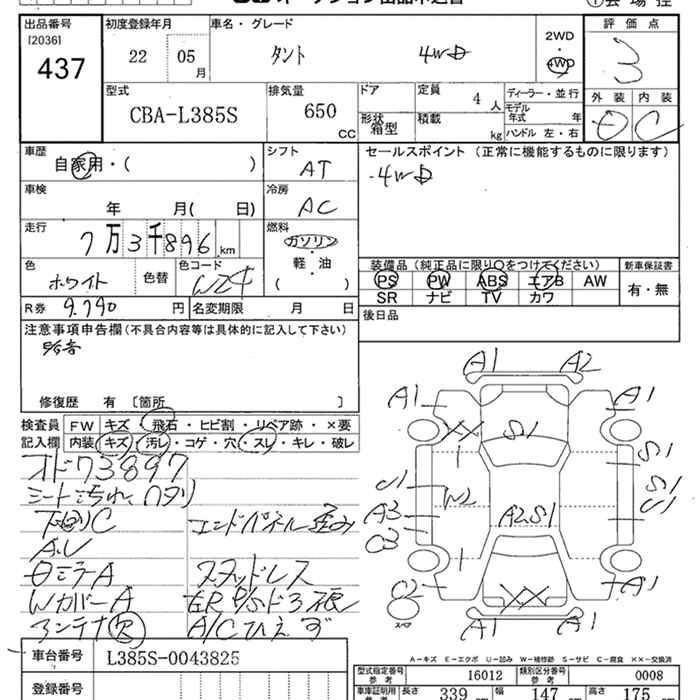 出品番号
[2036]
437
初度登録年月
22 05 月
車名・グレード
タント 4WD
2WD
・
4WD
評価点
3
外装 内装
C
型式
CBA-L385S
排気量
650 CC
ドア
形状
箱型
定員
4 人
積載
kg
ディーラー・並行
モデル
年式 年
ハンドル 左・右
車歴
自家用・( )
シフト
AT
セールスポイント (正常に機能するものに限ります)
・4WD
車検
年 月( 日)
冷房
AC
走行
7万3千896 km
燃料
ガソリン
・
軽・油
( )
色
ホワイト
色替
色コード
W24
装備品 (純正品に限り○をつけてください)
PS PW ABS エアB AW
SR ナビ TV カワ
新車保証書
有・無
R券 9.790 円
名変期限 月 日
後日品
注意事項申告欄(不具合内容等は具体的に記入して下さい)
修復歴 有 〔箇所 〕
検査員
記入欄
FW キズ・飛石・ヒビ割・リペア跡・×要
内装 キズ・汚レ・コゲ・穴・スレ・キレ・破レ
オド73897
シート汚れ、ヘタリ
下回りC
エンドパネル歪み
A.U
スタッドレス
WカバーA
アンテナ欠
A/Cひえず
A1 A2
A1 A1
XX S1
S1
U1 W2 S1
A3 A2S1 U1
C3
C2 XX A1
スペア
A1 A1
A-キズ E-エクボ U-凹み W-補修跡 S-サビ C-腐食 ××-交換済
車台番号
L385S-0043825
登録番号
型式指定番号
参考
16012
類別区分番号
参考
0008
車庫証明用
参考
長さ 339 cm 幅 147 cm 高さ 175 cm